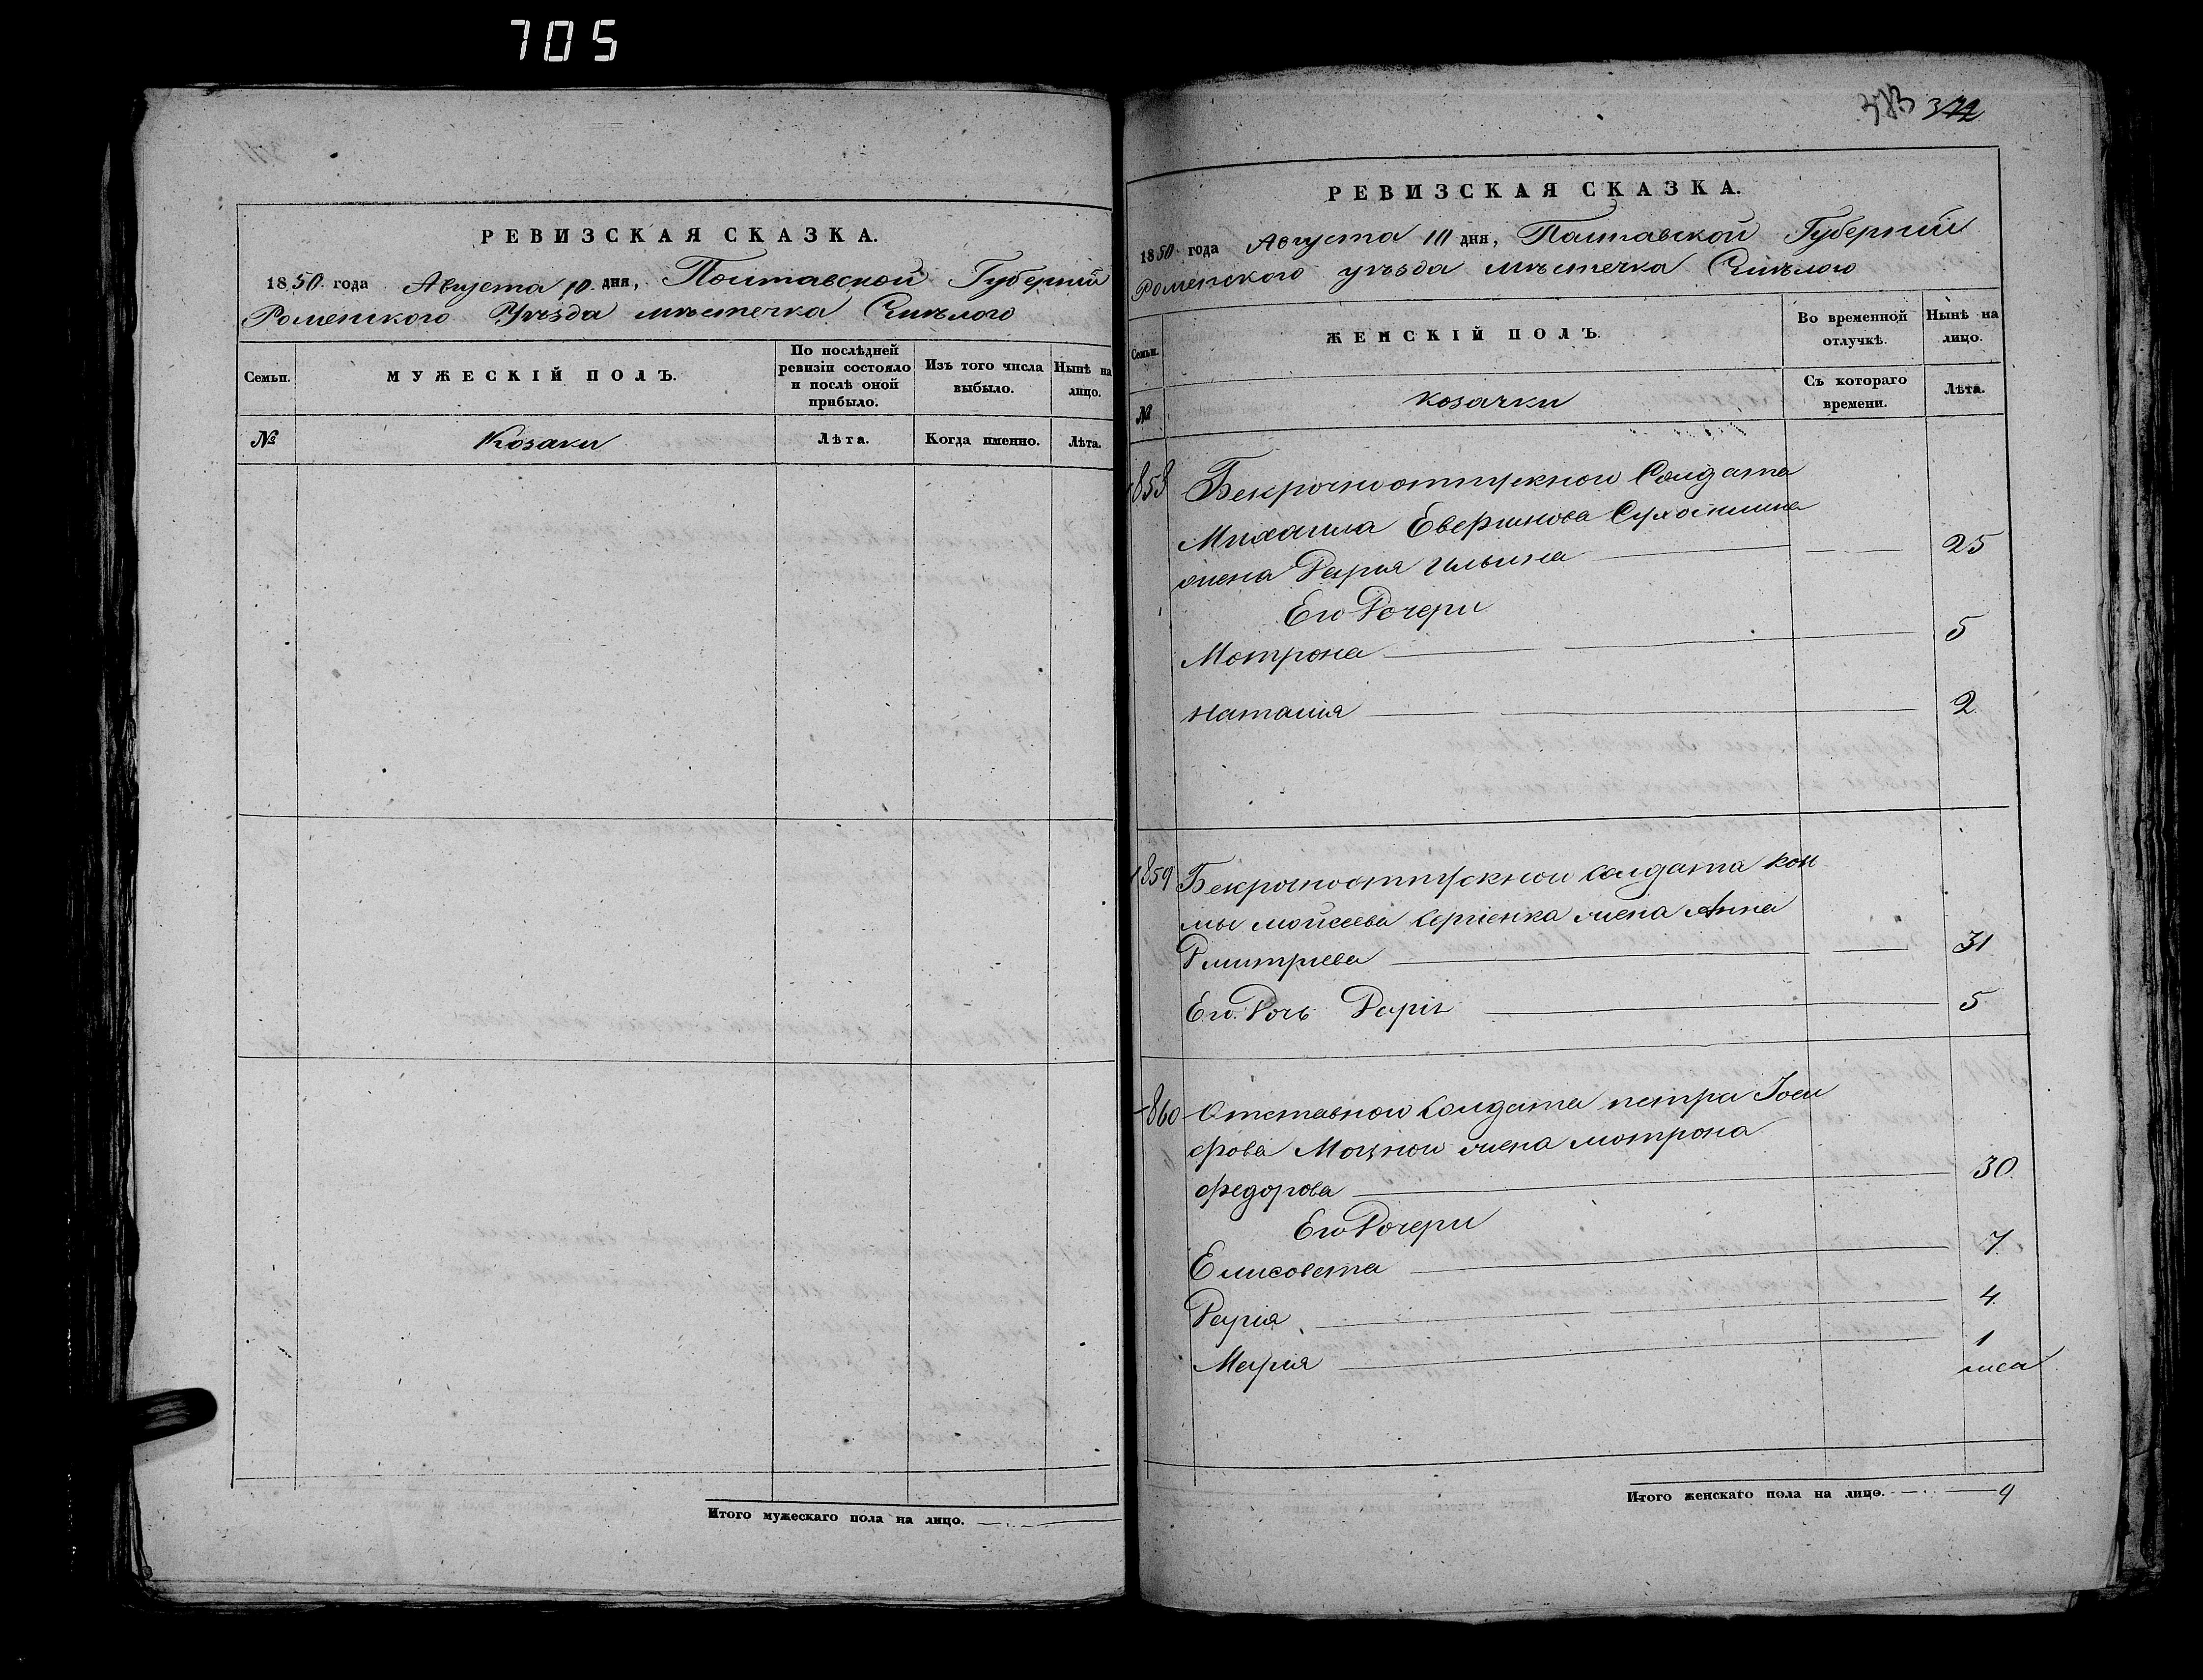 705
РЕВИЗСКАЯ СКАЗКА.
1850 года Августа 10 дня, Полтавской Губерніи
Роменского Уѣзда мѣстечка Смѣлого
Семьи.
МУЖЕСКІЙ ПОЛЪ.
По послѣдней ревизіи состояло и послѣ оной прибыло.
Изъ того числа выбыло.
Нынѣ на лицо.
№
Козаки
Лѣта.
Когда именно.
Лѣта.
Итого мужескаго пола на лицо.
383 372
РЕВИЗСКАЯ СКАЗКА.
1850 года Августа 10 дня, Полтавской Губерніи
Роменского уѣзда мѣстечка Смѣлого
Семьи.
ЖЕНСКІЙ ПОЛЪ.
Во временной отлучкѣ.
Нынѣ на лицо.
№
козачки
Съ котораго времени.
Лѣта.
858 Безсрочноотпускной Солдата
Михаила
жена Дарія Ильина 25
Его Дочери
Мотрона 5
Наталія 2
859 Безсрочноотпускной солдата Коз
мы Моисеева Сергіенка жена Анна
Дмитріева 31
Его Дочь Дарія 5
860 Отставной Солдата петра Іоси
фова Моцной жена мотрона
федорова 30
Его Дочери
Елисовета 7
Дарія 4
Марія 1
мса
Итого женскаго пола на лицо. 9